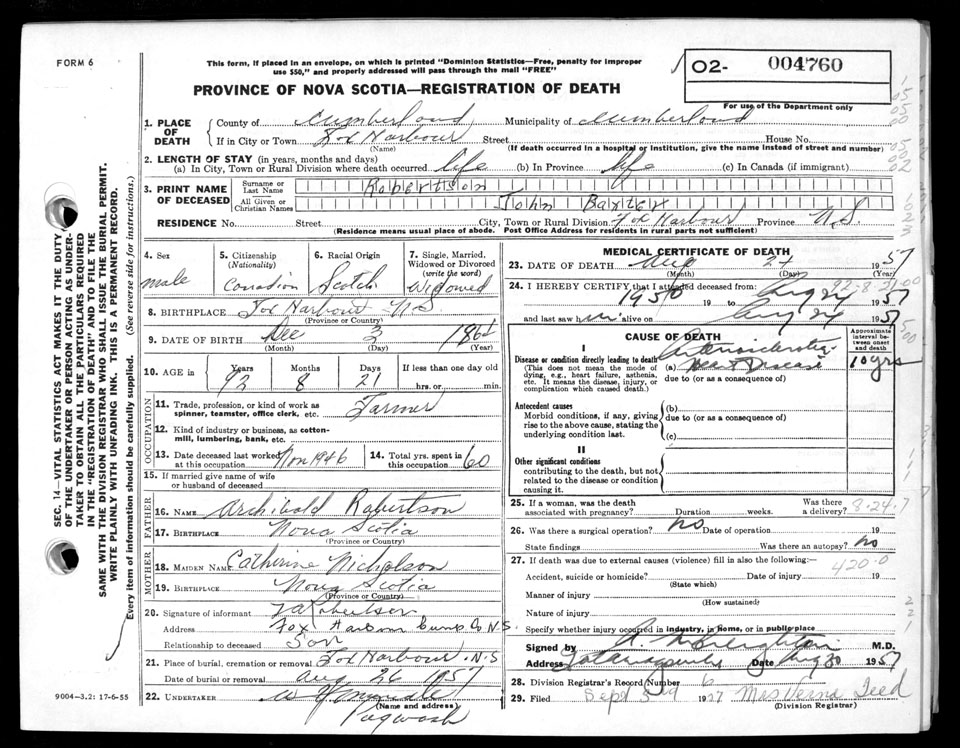 FORM 6
This form, if placed in an envelope, on which is printed "Dominion Statistics—Free, penalty for improper
use $50," and properly addressed will pass through the mail "FREE"
02- 004760
PROVINCE OF NOVA SCOTIA—REGISTRATION OF DEATH
For use of the Department only
1. PLACE OF DEATH County of Cumberland Municipality of Cumberland
If in City or Town Fox Harbour Street House No.
(Name) (If death occurred in a hospital or institution, give the name instead of street and number)
2. LENGTH OF STAY (in years, months and days)
(a) In City, Town or Rural Division where death occurred life (b) In Province life (c) In Canada (if immigrant)
3. PRINT NAME OF DECEASED Surname or Last Name Robertson
All Given or Christian Names John Baxter
RESIDENCE No. Street City, Town or Rural Division Fox Harbour Province N.S.
(Residence means usual place of abode. Post Office Address for residents in rural parts not sufficient)
4. Sex 5. Citizenship (Nationality) 6. Racial Origin 7. Single, Married, Widowed or Divorced (write the word)
male Canadian Scotch Widowed
8. BIRTHPLACE Fox Harbour N S
(Province or Country)
9. DATE OF BIRTH Dec 3 1864
(Month) (Day) (Year)
10. AGE in Years Months Days If less than one day old
92 8 21 hrs. or min.
OCCUPATION
11. Trade, profession, or kind of work as spinner, teamster, office clerk, etc. Farmer
12. Kind of industry or business, as cotton-mill, lumbering, bank, etc.
13. Date deceased last worked at this occupation Nov 1946 14. Total yrs. spent in this occupation 60
15. If married give name of wife or husband of deceased
FATHER
16. NAME Archibald Robertson
17. BIRTHPLACE Nova Scotia
(Province or Country)
MOTHER
18. MAIDEN NAME Catherine Nicholson
19. BIRTHPLACE Nova Scotia
(Province or Country)
20. Signature of informant Robertson
Address Fox Harbour Cumb Co N.S.
Relationship to deceased Son
21. Place of burial, cremation or removal Fox Harbour N.S
Date of burial or removal Aug 26 1957
22. UNDERTAKER
(Name and address)
Pugwash
MEDICAL CERTIFICATE OF DEATH
23. DATE OF DEATH Aug 24 1957
(Month) (Day) (Year)
24. I HEREBY CERTIFY that I attended deceased from:
1950 19 to Aug 24 1957
and last saw him alive on Aug 24 1957
CAUSE OF DEATH
Approximate interval between onset and death
I
Disease or condition directly leading to death (a) Arteriosclerotic Heart Disease 10 yrs
(This does not mean the mode of dying, e.g., heart failure, asthenia, etc. It means the disease, injury, or complication which caused death.) due to (or as a consequence of)
Antecedent causes (b)
Morbid conditions, if any, giving rise to the above cause, stating the underlying condition last. due to (or as a consequence of)
(c)
II
Other significant conditions
contributing to the death, but not related to the disease or condition causing it.
25. If a woman, was the death associated with pregnancy? Duration weeks. Was there a delivery? 8-24-7
26. Was there a surgical operation? No Date of operation 19
State findings Was there an autopsy? No
27. If death was due to external causes (violence) fill in also the following:—
420-0
Accident, suicide or homicide? Date of injury 19
(State which)
Manner of injury
(How sustained)
Nature of injury
Specify whether injury occurred in industry, in home, or in public place
Signed by M.D.
Address Tatamagouche Date Aug 30 1957
28. Division Registrar's Record Number 6
29. Filed Sept 1957 Mrs Verna Teed
(Division Registrar)
SEC. 14—VITAL STATISTICS ACT MAKES IT THE DUTY
OF THE UNDERTAKER OR PERSON ACTING AS UNDER-
TAKER TO OBTAIN ALL THE PARTICULARS REQUIRED
IN THE "REGISTRATION OF DEATH" AND TO FILE THE
SAME WITH THE DIVISION REGISTRAR WHO SHALL ISSUE THE BURIAL PERMIT.
WRITE PLAINLY WITH UNFADING INK. THIS IS A PERMANENT RECORD.
Every item of information should be carefully supplied. (See reverse side for instructions.)
9004—3.2: 17-6-55